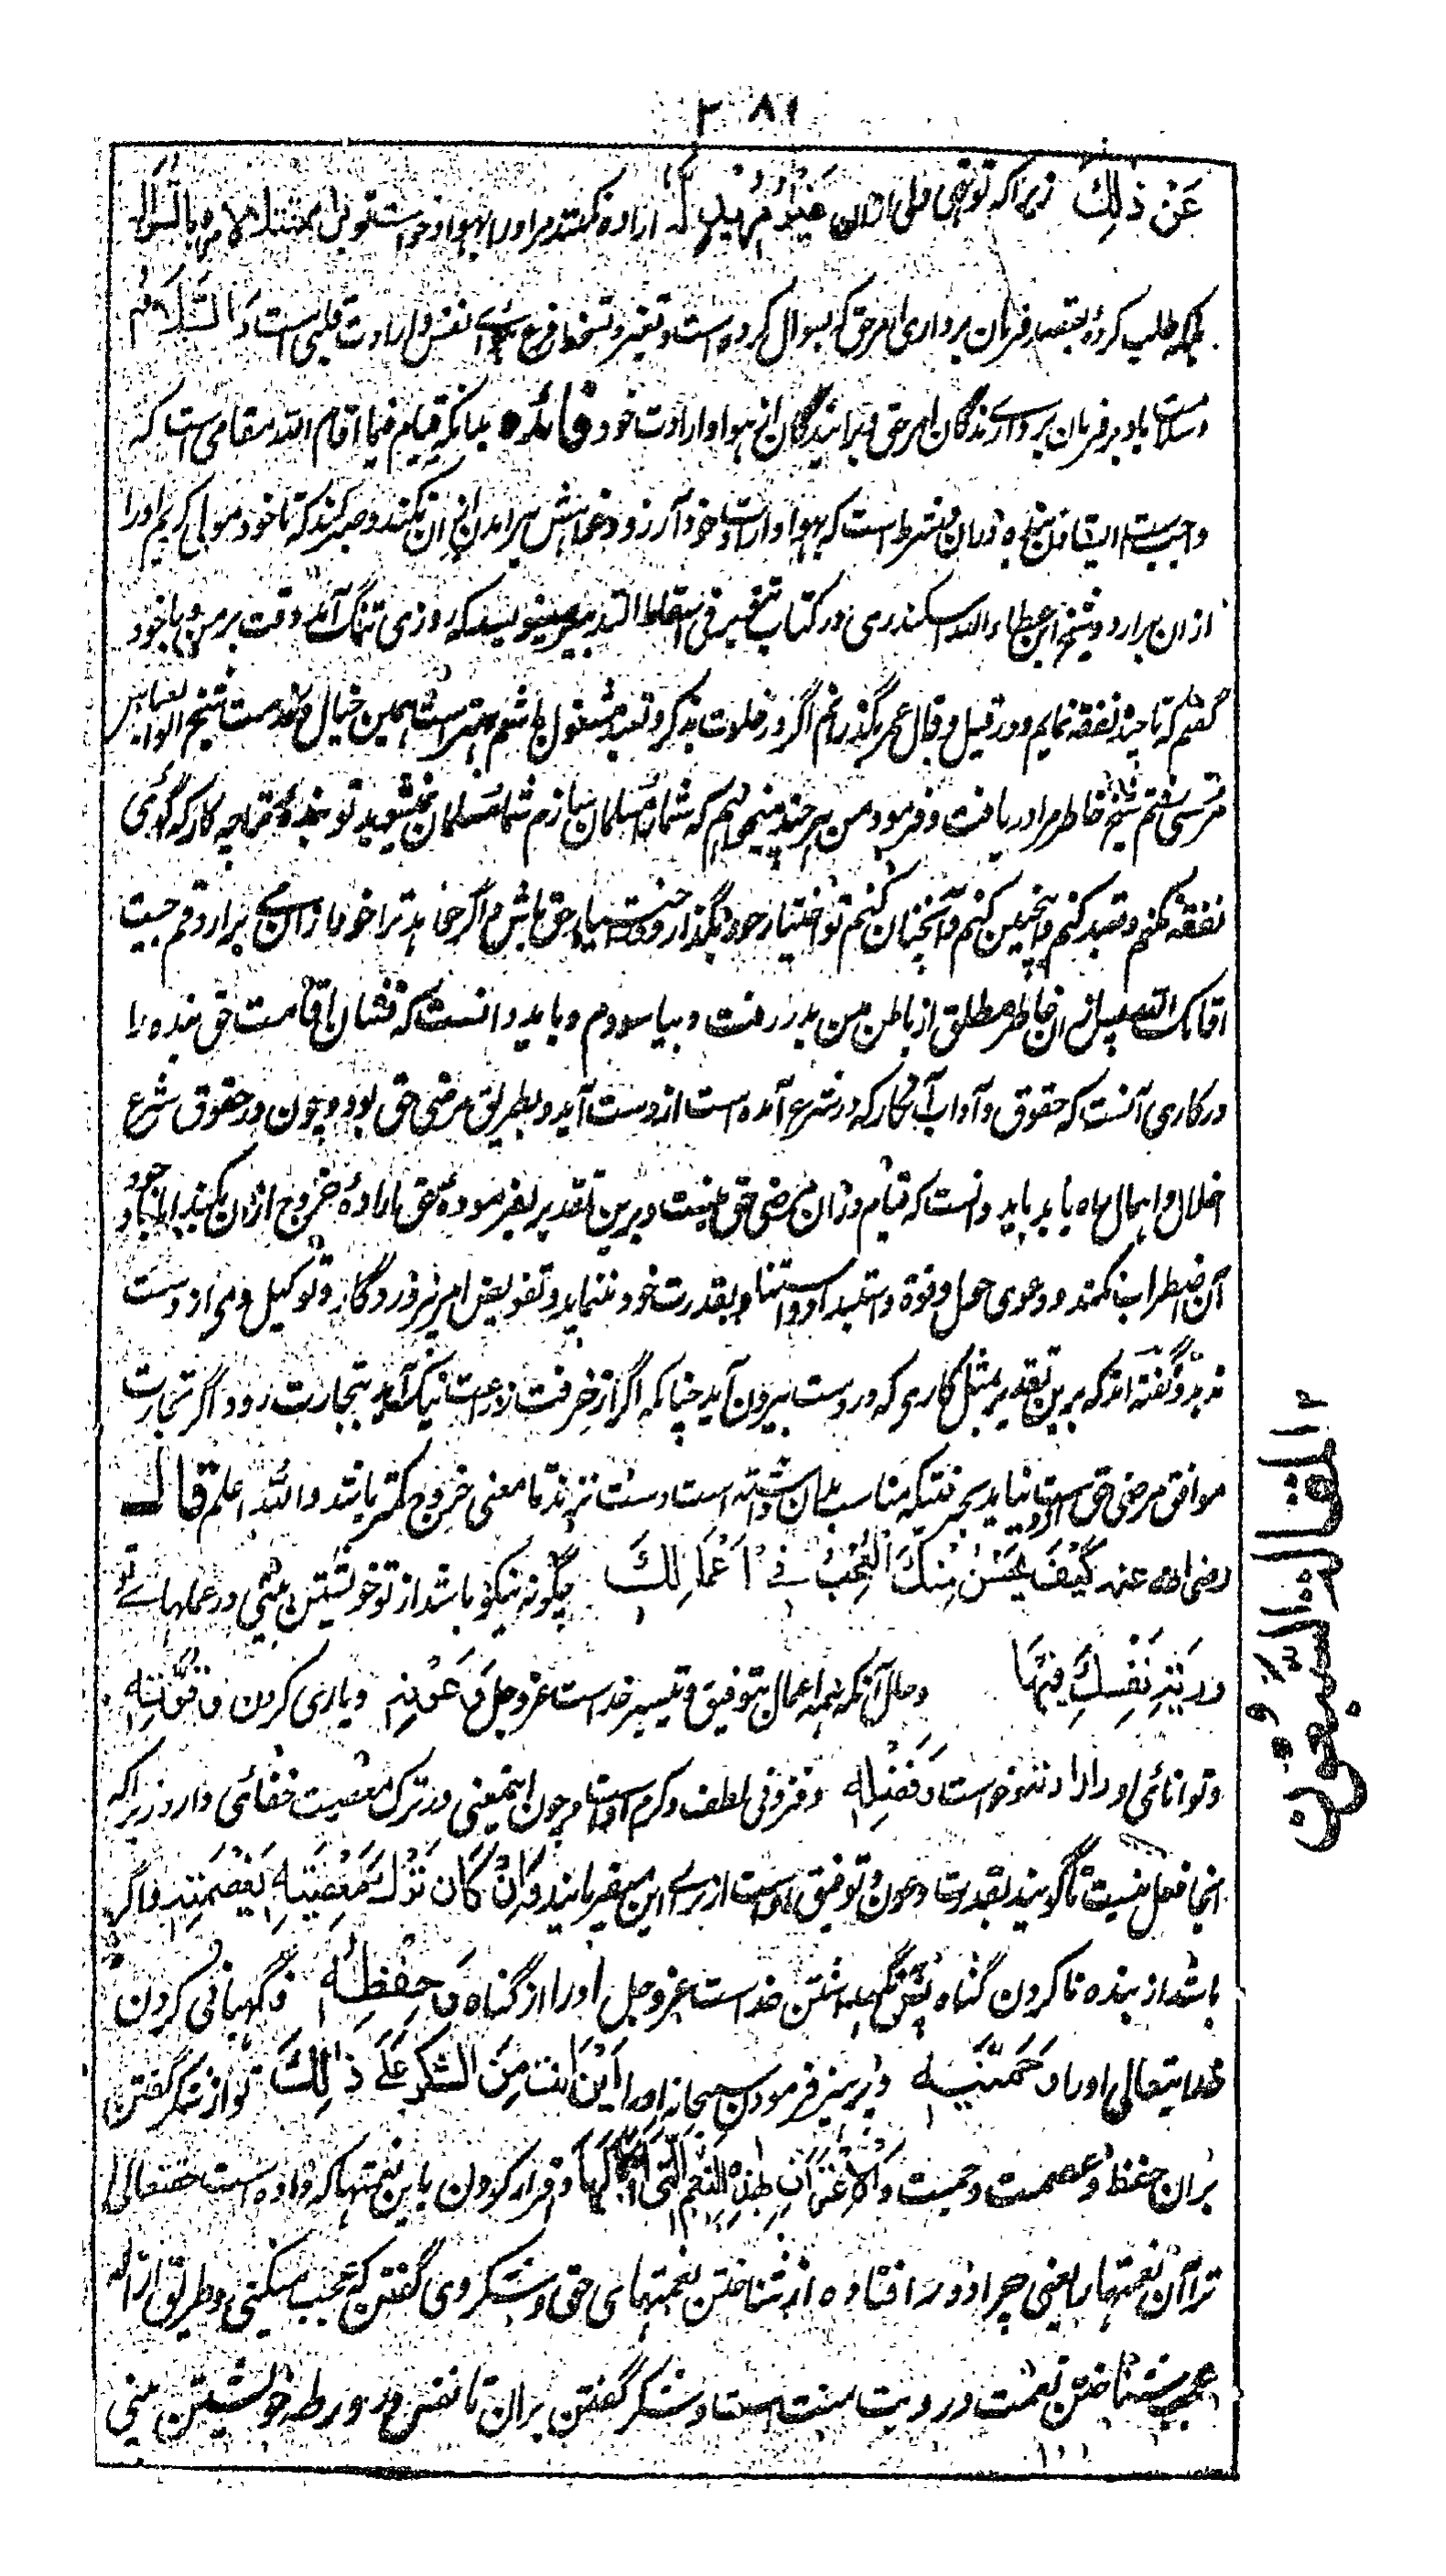 ٣٨١
عَنْ ذٰلِكَ زیرا که تو نهی ولی اراده نکنند مراورا بهوا و خواست
طلب کرده بقصد فرمان برداری امر حق که سوال کرده است و تغیر و تسخط فرع نفس و ارادت قلبی است وَالسَّلَامُ
و سلام باد بر فرمان بردارندگان امر حق و برآیندگان از هوا و ارادت خود فائده بدانکه قیام فیما اقام الله مقامی است که
واجب است ایستادن بنده دران و شرط است که بهوا و ارادت خود آرزو و خواهش برآمدن از ان نکند و صبر کند که تا خود مولای کریم اورا
ازان برارد و شیخ ابن عطاء الله اسکندری در کتاب تنویر فی اسقاط التدبیر مینویسد که روزی تنگ آمد وقت بر من و با خود
گفتم که تا چند تفقه نمایم و در قیل و قال عمر بگذرانم اگر در خلوت بذکر و تعبد مشغول باشم بهتر است بهمین خیال بخدمت شیخ ابو العباس
مرسی رفتم شیخ خاطر مرا دریافت و فرمود من هرچند میخواهم که شمارا مسلمان سازم شما مسلمان نمیشوید تو بنده ترا چه کار که گوئی
تفقه نکنم و تعبد کنم و اینچنین کنم و آنچنان کنم تو اختیار خود بگذار و باختیار حق باش اگر خواهد ترا خود ازان برارد قم حیث
اقامک الله پس از ان خاطر مطلق از باطن من بدر رفت و بیاسودم و باید دانست که نشان اقامت حق بنده را
در کاری آنست که حقوق و آداب آن کار که در شرع آمده است از دست آید و بطریق مرضی حق بود و چون در حقوق شرع
اخلال و اهمال راه یابد باید دانست که قیام دران مرضی حق نیست و برین تقدیر بفرموده حق اراده خروج ازان بکند اما باید خود
آن اضطراب نکند و دعوی حول و قوة و استبداد و استغنا بقدرت خود ننماید و تفویض امر به پروردگار و توکیل وی از دست
ندهد و گفته اند که برین تقدیر بمثل کاری که در دست بیرون آید چنانکه اگر از حرفت زراعت نیک آمد بتجارت رود و اگر تجارت
موافق مرضی حق نیاید بحرفتیکه مناسب بدان داشته است دست نزند تا معنی خروج کمتر باشد والله اعلم قَالَ
رضی الله عنه كَيْفَ يَحْسُنُ مِنْكَ الْعُجْبُ فِيْ اَعْمَالِكَ چگونه نیکو باشد از تو خویشتن بینی در عملهاے تو
وَرُؤْيَةُ نَفْسِكَ فِيْهَا و حال آنکه همه اعمال بتوفیق و تیسیر خداست عزوجل وَعَوْنِهٖ و یاری کردن وَقُوَّتِهٖ
و توانائی او وَاِرَادَتِهٖ و خواست وَفَضْلِهٖ و فزونی لطف و کرم اوست و چون اینمعنی در ترک معصیت خفائی دارد زیراکه
اینجا فعل نیست تا گویند بقدرت و عون و توفیق اوست از برای این میفرمایند وَاِنْ كَانَ تَرْكُ مَعْصِيَتِهٖ فَبِعِصْمَتِهٖ و اگر
باشد از بنده ناکردن گناه پس نگهداشتن خداست عزوجل اورا از گناه وَحِفْظِهٖ و نگهبانی کردن
خدایتعالی اورا وَحَمِيَّتِهٖ و پرهیز فرمودن سبحانه اورا اَيْنَ اَنْتَ مِنَ الشُّكْرِ عَلٰى ذٰلِكَ تو از شکر گفتن
بران حفظ و عصمت و حمیت وَالْاِعْتِرَافِ بِهٰذِهِ النِّعَمِ الَّتِيْ اَوْلَاكَهَا و اقرار کردن باین نعمتها که داده است حقتعالی
ترا آن نعمتها را یعنی چرا دور افتاده از شناختن نعمتهای حق و شکر وی گفتن که عجب میکنی و طریق ازاله
عجب شناختن نعمت و رویت منت است و شکر گفتن بران تا نفس در ورطه خویشتن بینی
المقالة السبعون